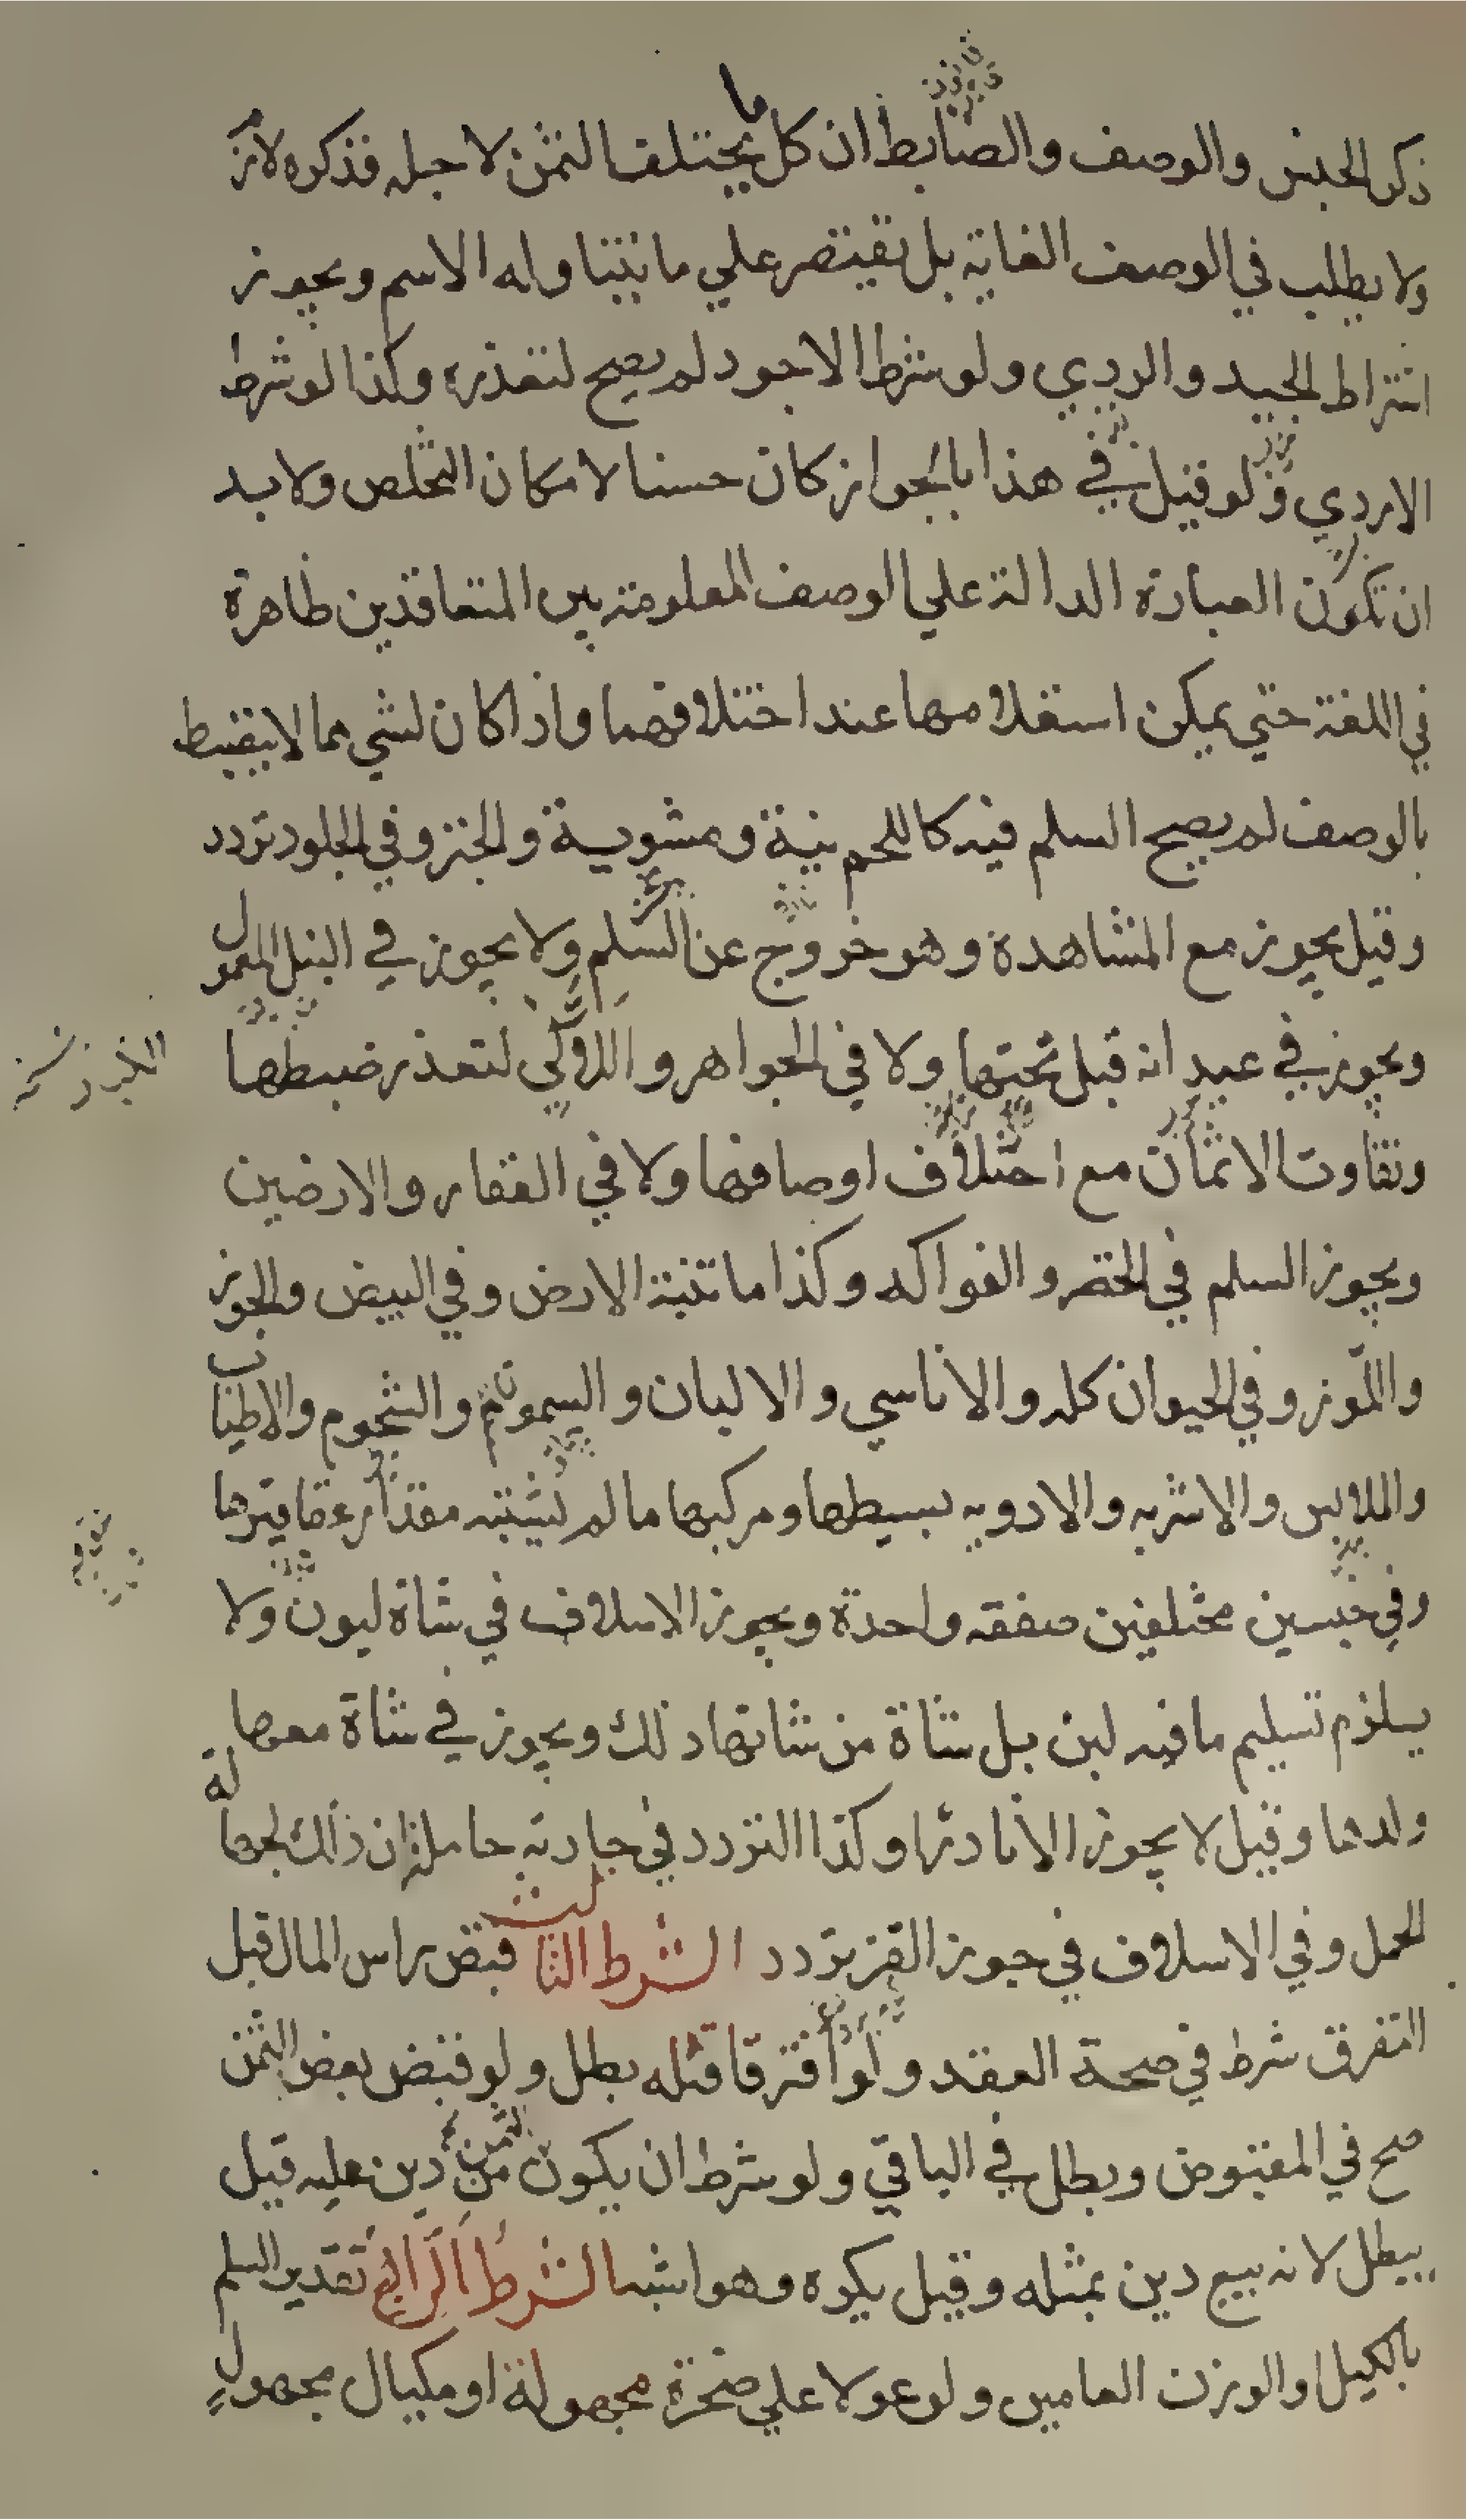 ذكر الجنس والوصف والضابط ان كل ما يختلف الثمن لاجله فذكره لازم
ولا يطلب في الوصف الغاية بل يقتصر علي ما يتناوله الاسم ويجوز
اشتراط الجيد والردي ولو شرط الاجود لم يصح لتعذره وكذا لو شرط
الاردي ولو قيل في هذا بالجواز كان حسنا لامكان التخلص ولا بد
ان تكون العبارة الدالة علي الوصف المعلومة بين المتعاقدين ظاهرة
في اللغة حتي يمكن استعلامها عند اختلافهما واذا كان لشي مما لا ينضبط
بالوصف لم يصح السلم فيه كاللحم نية ومشوية والخبز وفي الجلود تردد
وقيل يجوز مع المشاهدة وهو خروج عن السلم ولا يجوز في النبل المعمول
ويجوز في عيدانه قبل نحتها ولا في الجواهر واللآلي لتعذر ضبطها
وتفاوت الاثمان مع اختلاف اوصافها ولا في العقار والارضين
ويجوز السلم في الخضر والفواكه وكذا ما تنبته الارض وفي البيض والجوز
واللوز وفي الحيوان كله والاناسي والالبان والسمون والشحوم والاطياب
والملابس والاشربه والادويه بسيطها ومركبها ما لم يشتبه مقدار عقاقيرها
وفي جنسين مختلفين صفقه واحدة ويجوز الاسلاف في شاة لبون ولا
يلزم تسليم ما فيه لبن بل شاة من شانها ذلك ويجوز في شاة معها
ولدها وقيل لا يجوز الا نادرا وكذا التردد في جارية حاملة ان ذلك لجهالة
الحمل وفي الاسلاف في جوز القز تردد الشرط الثالث قبض راس المال قبل
التفرق شرط في صحة العقد ولو افترقا قبله بطل ولو قبض بعض الثمن
صح في المقبوض وبطل في الباقي ولو شرط ان يكون الثمن من دين عليه قيل
يبطل لانه بيع دين بمثله وقيل يكره وهو اشبه الشرط الرابع تقدير السلم
بالكيل او الوزن العامين ولو عولا علي صخرة مجهولة او مكيال مجهول